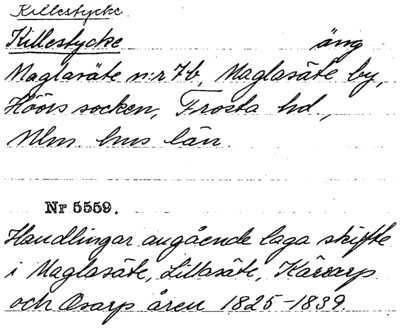 Killestycke
Killestycke äng
Maglasäte n:r 7b, Maglasäte by,
Höörs socken, Frosta hd,
Mlm. hus län.
Nr 5559.
Handlingar angående laga skifte
i Maglasäte, Lillasäte, Kärarp
och Osarp åren 1825-1839